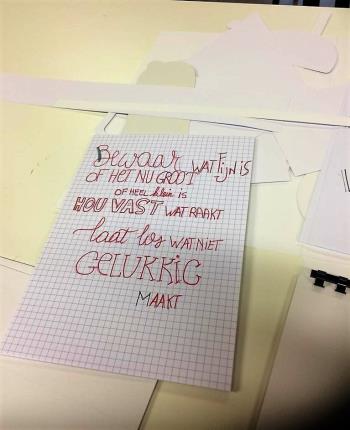 Bewaar WAT FIJN IS
OF HET NU GROOT
OF HEEL klein IS
HOU VAST WAT RAAKT
laat los WAT NIET
GELUKKIG
MAAKT